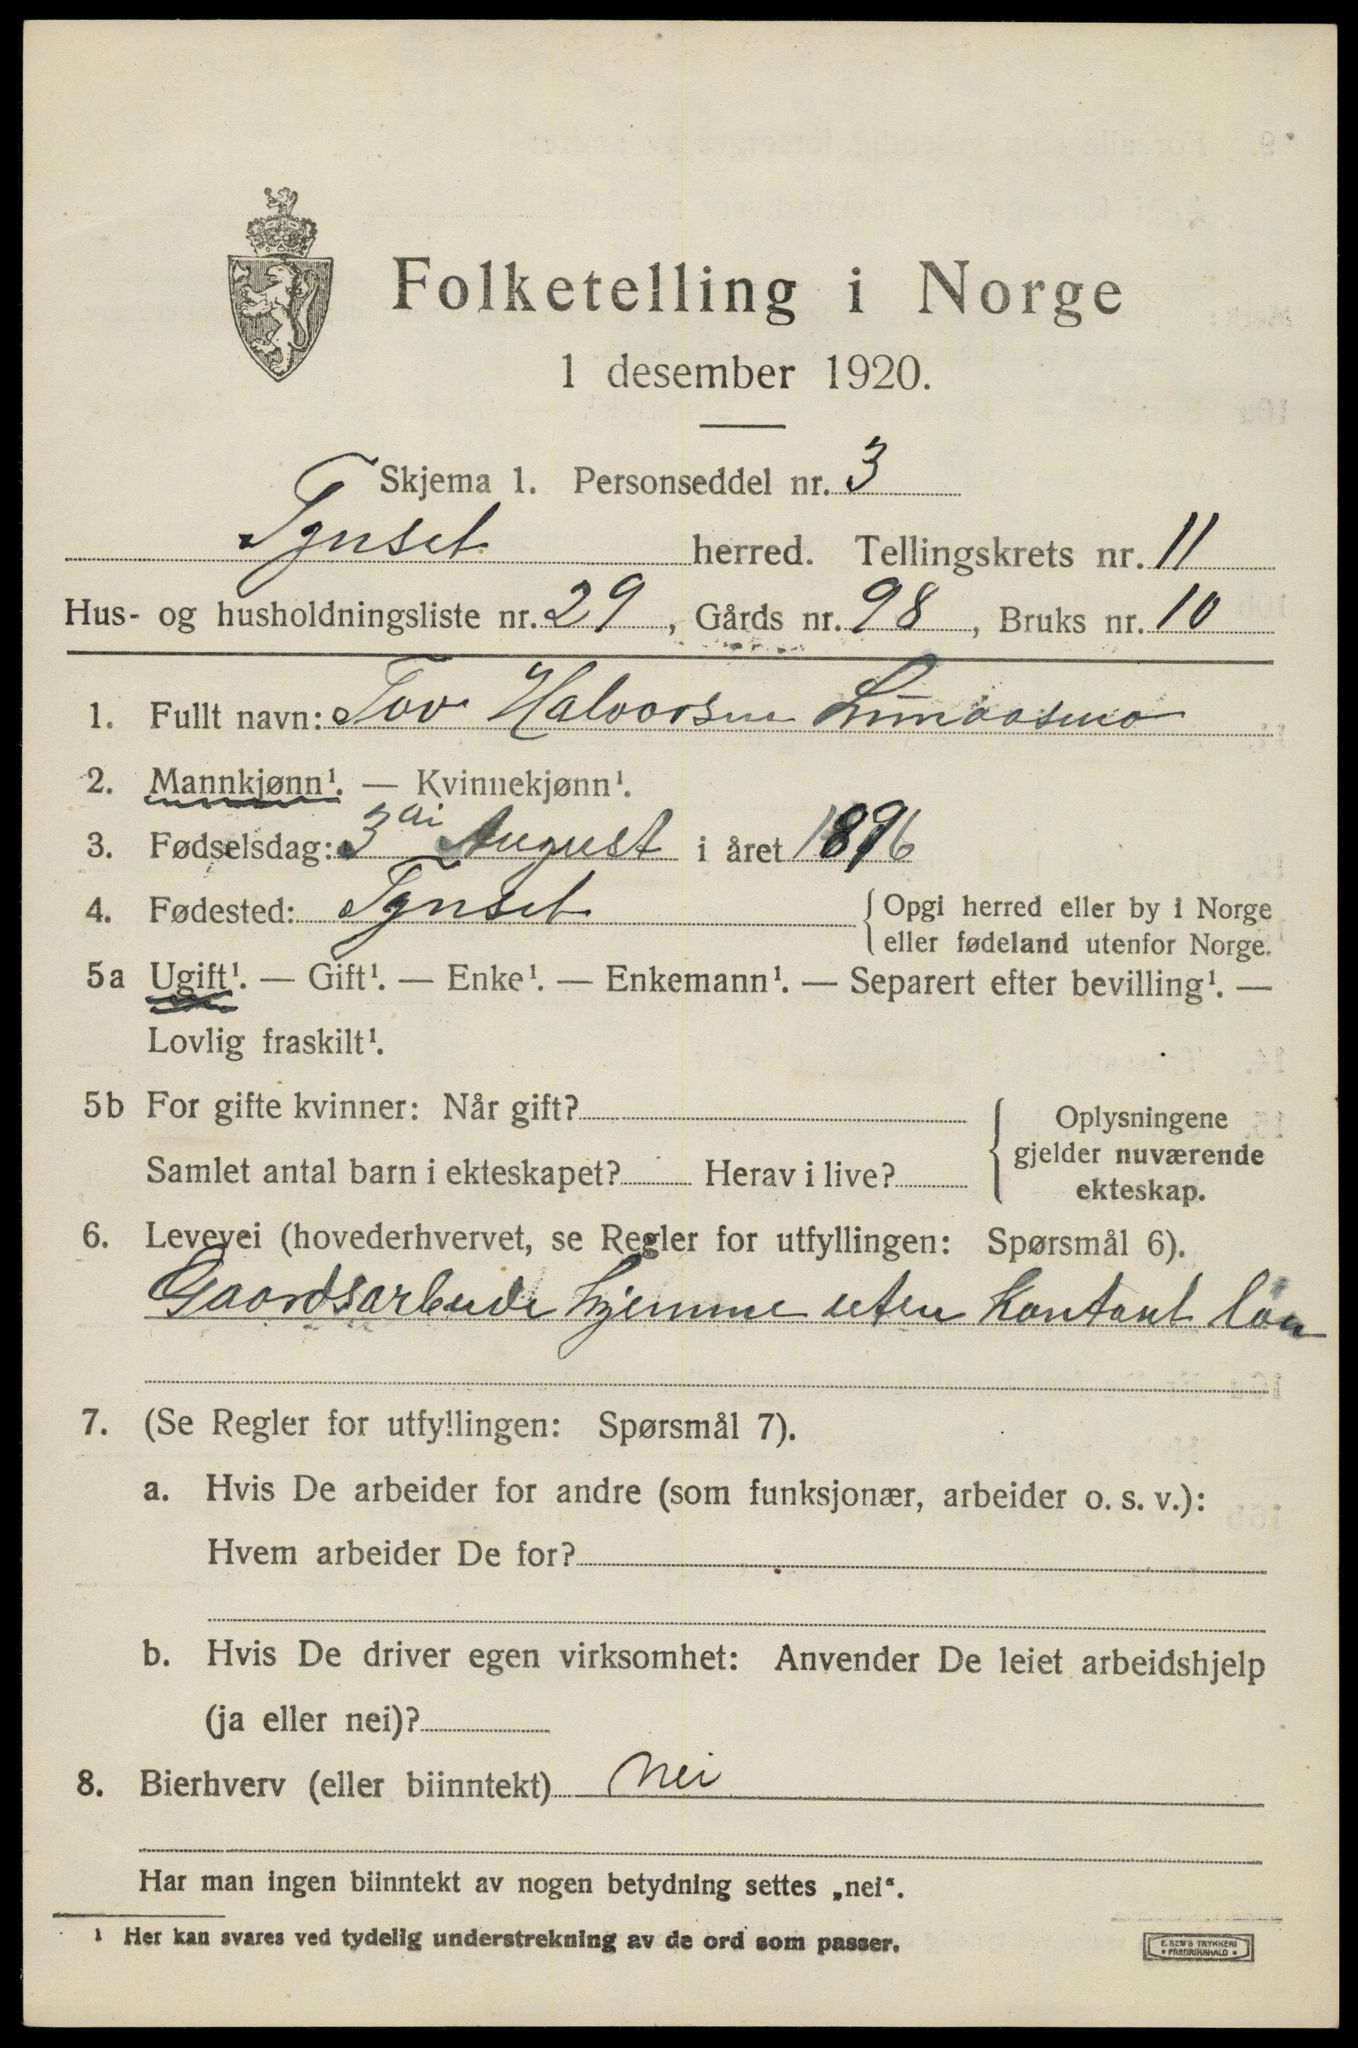 Folketelling i Norge
1 desember 1920.
Skjema 1. Personseddel nr. 3
Tynset herred. Tellingskrets nr. 11
Hus- og husholdningsliste nr. 29, Gårds nr. 98, Bruks nr. 10
1. Fullt navn: Tov Halvorsen
2. Mannkjønn¹. — Kvinnekjønn¹.
3. Fødselsdag: 3di August i året 1896
4. Fødested: Tynset { Opgi herred eller by i Norge
eller fødeland utenfor Norge.
5a Ugift¹. — Gift¹. — Enke¹. — Enkemann¹. — Separert efter bevilling¹. —
Lovlig fraskilt¹.
5b For gifte kvinner: Når gift? { Oplysningene
gjelder nuværende
ekteskap.
Samlet antal barn i ekteskapet? Herav i live?
6. Levevei (hovederhvervet, se Regler for utfyllingen: Spørsmål 6).
Gaardsarbeide hjemme uten kontant løn
7. (Se Regler for utfyllingen: Spørsmål 7).
a. Hvis De arbeider for andre (som funksjonær, arbeider o. s. v.):
Hvem arbeider De for?
b. Hvis De driver egen virksomhet: Anvender De leiet arbeidshjelp
(ja eller nei)?
8. Bierhverv (eller biinntekt) Nei
Har man ingen biinntekt av nogen betydning settes „nei“.
¹ Her kan svares ved tydelig understrekning av de ord som passer.
E. SEM'S TRYKKERI
• FREDRIKSHALD •